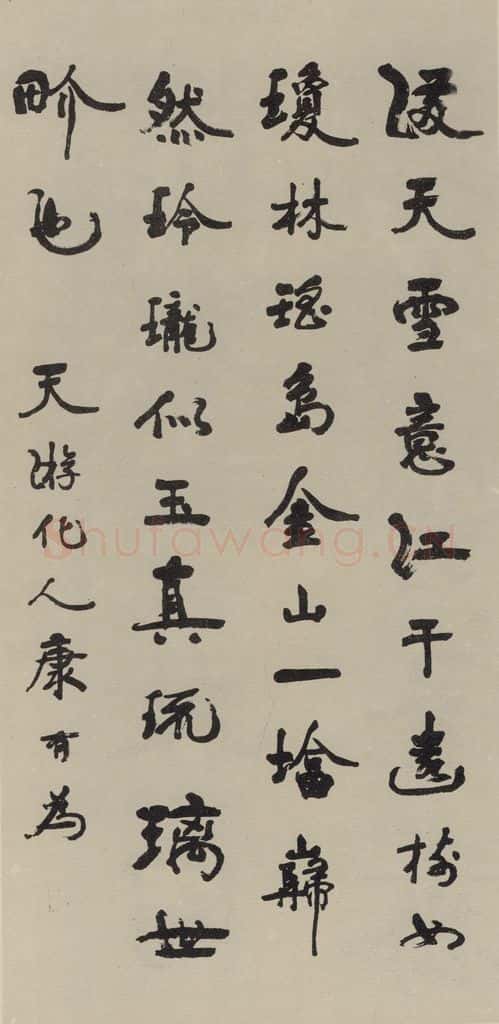 漫天雪意江干遠樹如
瓊林瑤島金山一塔巋
然玲瓏似玉真琉璃世
畍也 天游化人康有為
Shufawang.CN